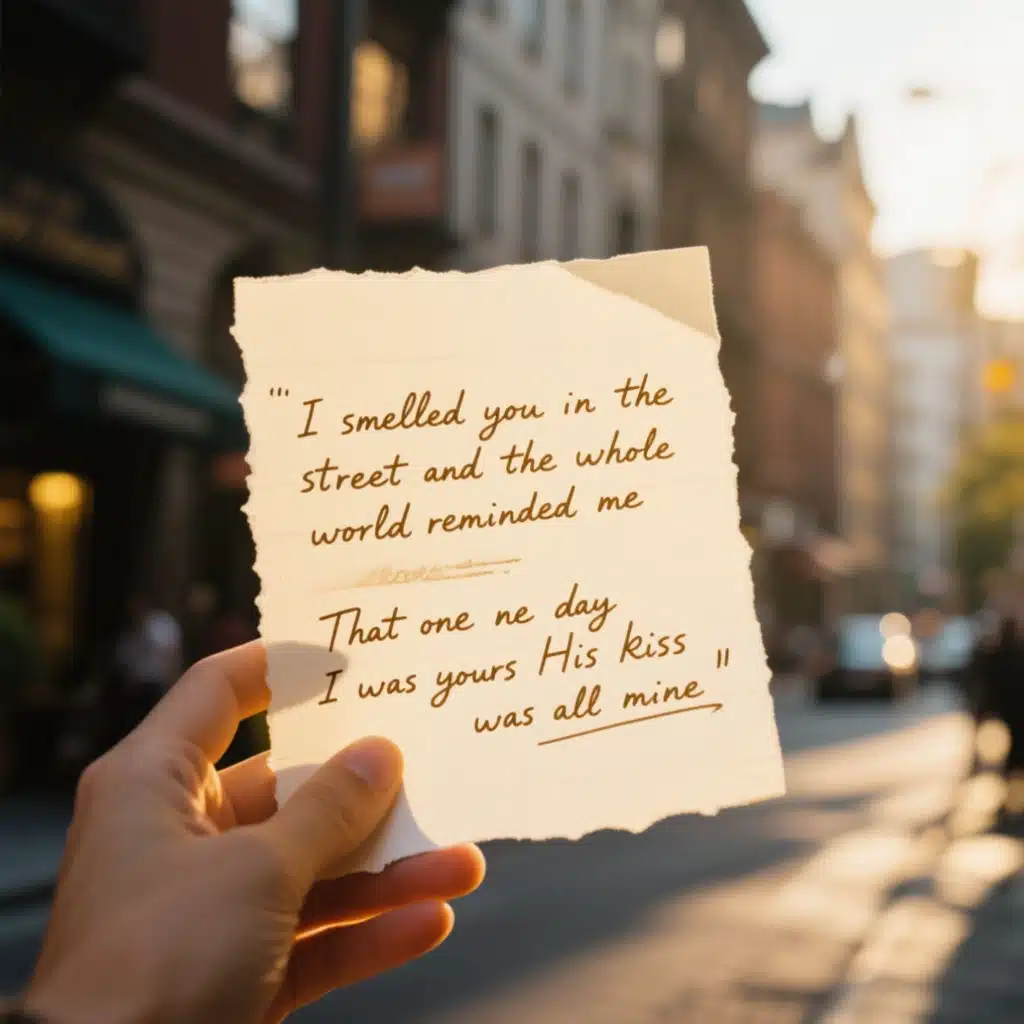 "' I smelled you in the
street and the whole
world reminded me
That one ne day
I was yours His kiss
was all mine "